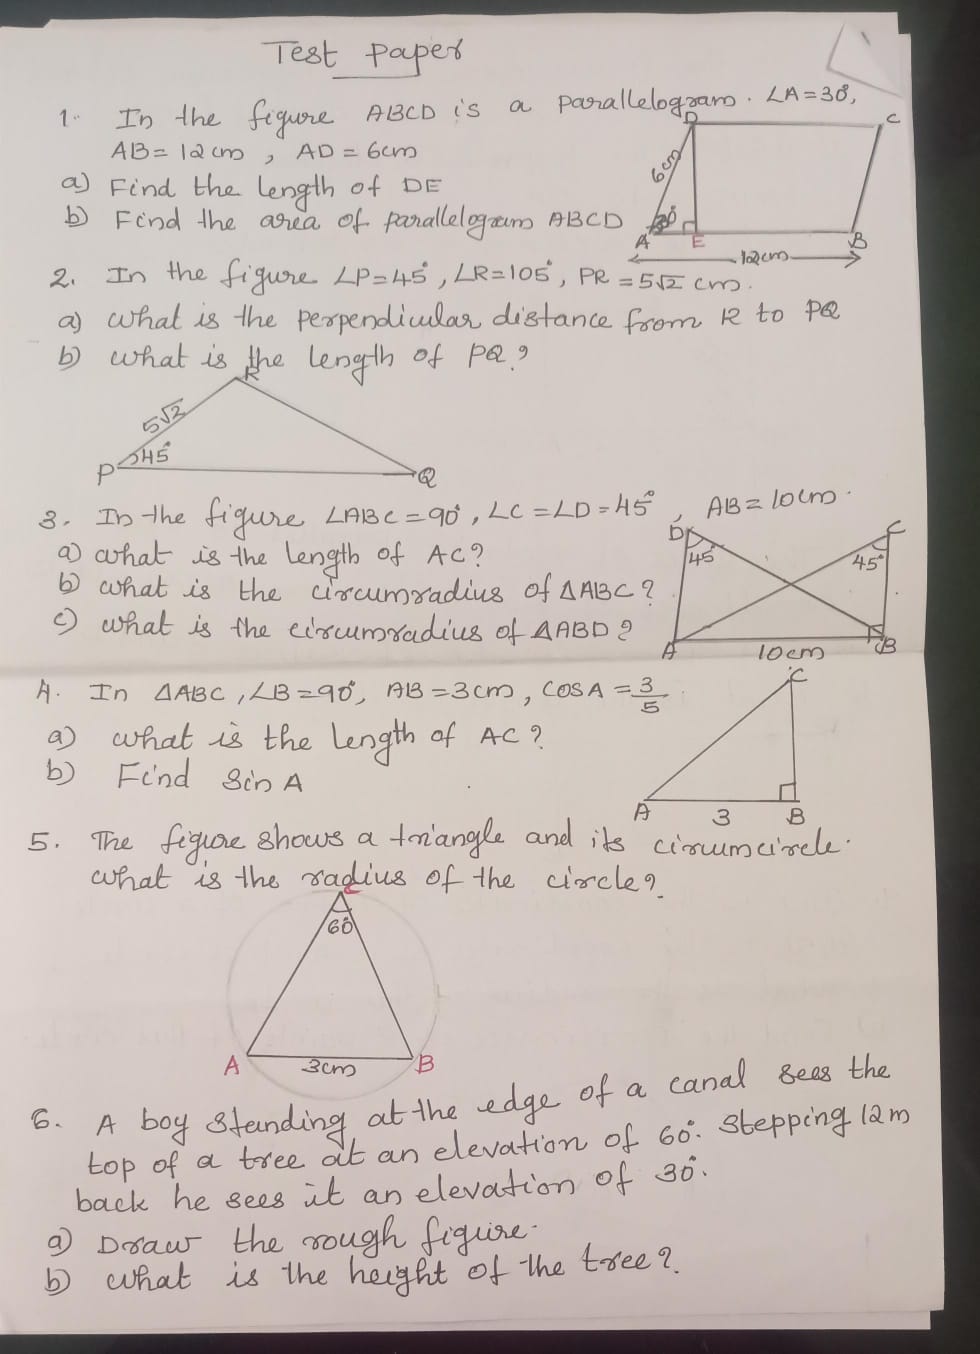 Test paper
1. In the figure ABCD is a parallelogram. ∠A=30°,
AB= 12cm , AD = 6cm
a) Find the length of DE
b) Find the area of parallelogram ABCD
D
C
6cm
30°
A
E
B
12cm
2. In the figure ∠P=45°, ∠R=105°, PR =5√2 cm.
a) what is the perpendicular distance from R to PQ
b) what is the length of PQ?
R
5√2
45°
P
Q
3. In the figure ∠ABC=90°, ∠C =∠D=45° , AB=10cm.
a) what is the length of AC?
b) what is the circumradius of △ABC?
c) what is the circumradius of △ABD?
D
C
45
45°
A
B
10cm
4. In △ABC, ∠B=90°, AB=3cm, cosA = 3/5
a) what is the length of AC?
b) Find SinA
C
A
3
B
5. The figure shows a triangle and its circumcircle.
what is the radius of the circle?
C
60°
A
3cm
B
6. A boy standing at the edge of a canal sees the
top of a tree at an elevation of 60°. Stepping 12m
back he sees it an elevation of 30°.
a) Draw the rough figure.
b) what is the height of the tree?